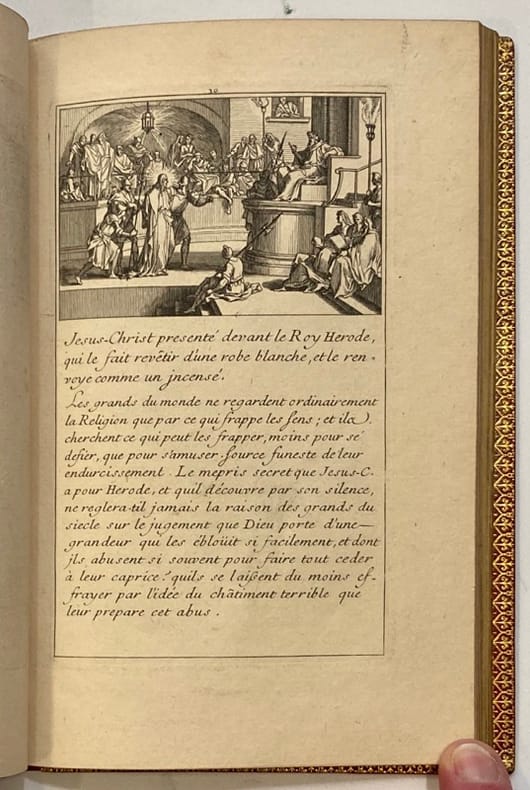 10
Jesus-Christ presenté devant le Roy Herode,
qui le fait revêtir d'une robe blanche, et le ren-
voye comme un jncensé.
Les grands du monde ne regardent ordinairement
la Religion que par ce qui frappe les sens; et ils
cherchent ce qui peut les frapper, moins pour sé
defier, que pour s'amuser. source funeste de leur
endurcissement. Le mepris secret que Jesus-C.
a pour Herode, et qu'il découvre par son silence,
ne reglera-t-il jamais la raison des grands du
siecle sur le jugement que Dieu porte d'une—
grandeur qui les éblouït si facilement, et dont
jls abusent si souvent pour faire tout ceder
à leur caprice? quils se laissent du moins ef-
frayer par l'idée du châtiment terrible que
leur prepare cet abus.